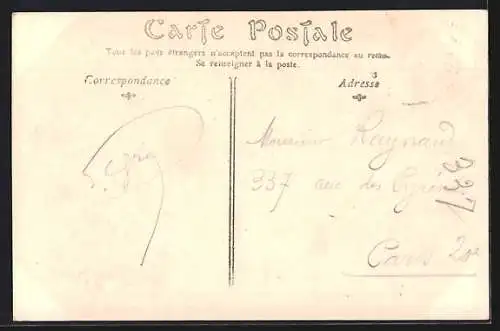 Carte Postale
Tous les pays étrangers n'acceptent pas la correspondance au recto.
Se renseigner à la poste.
Correspondance
Adresse
Monsieur Raynaud
337 rue des Pyrénées
Paris 20e
337